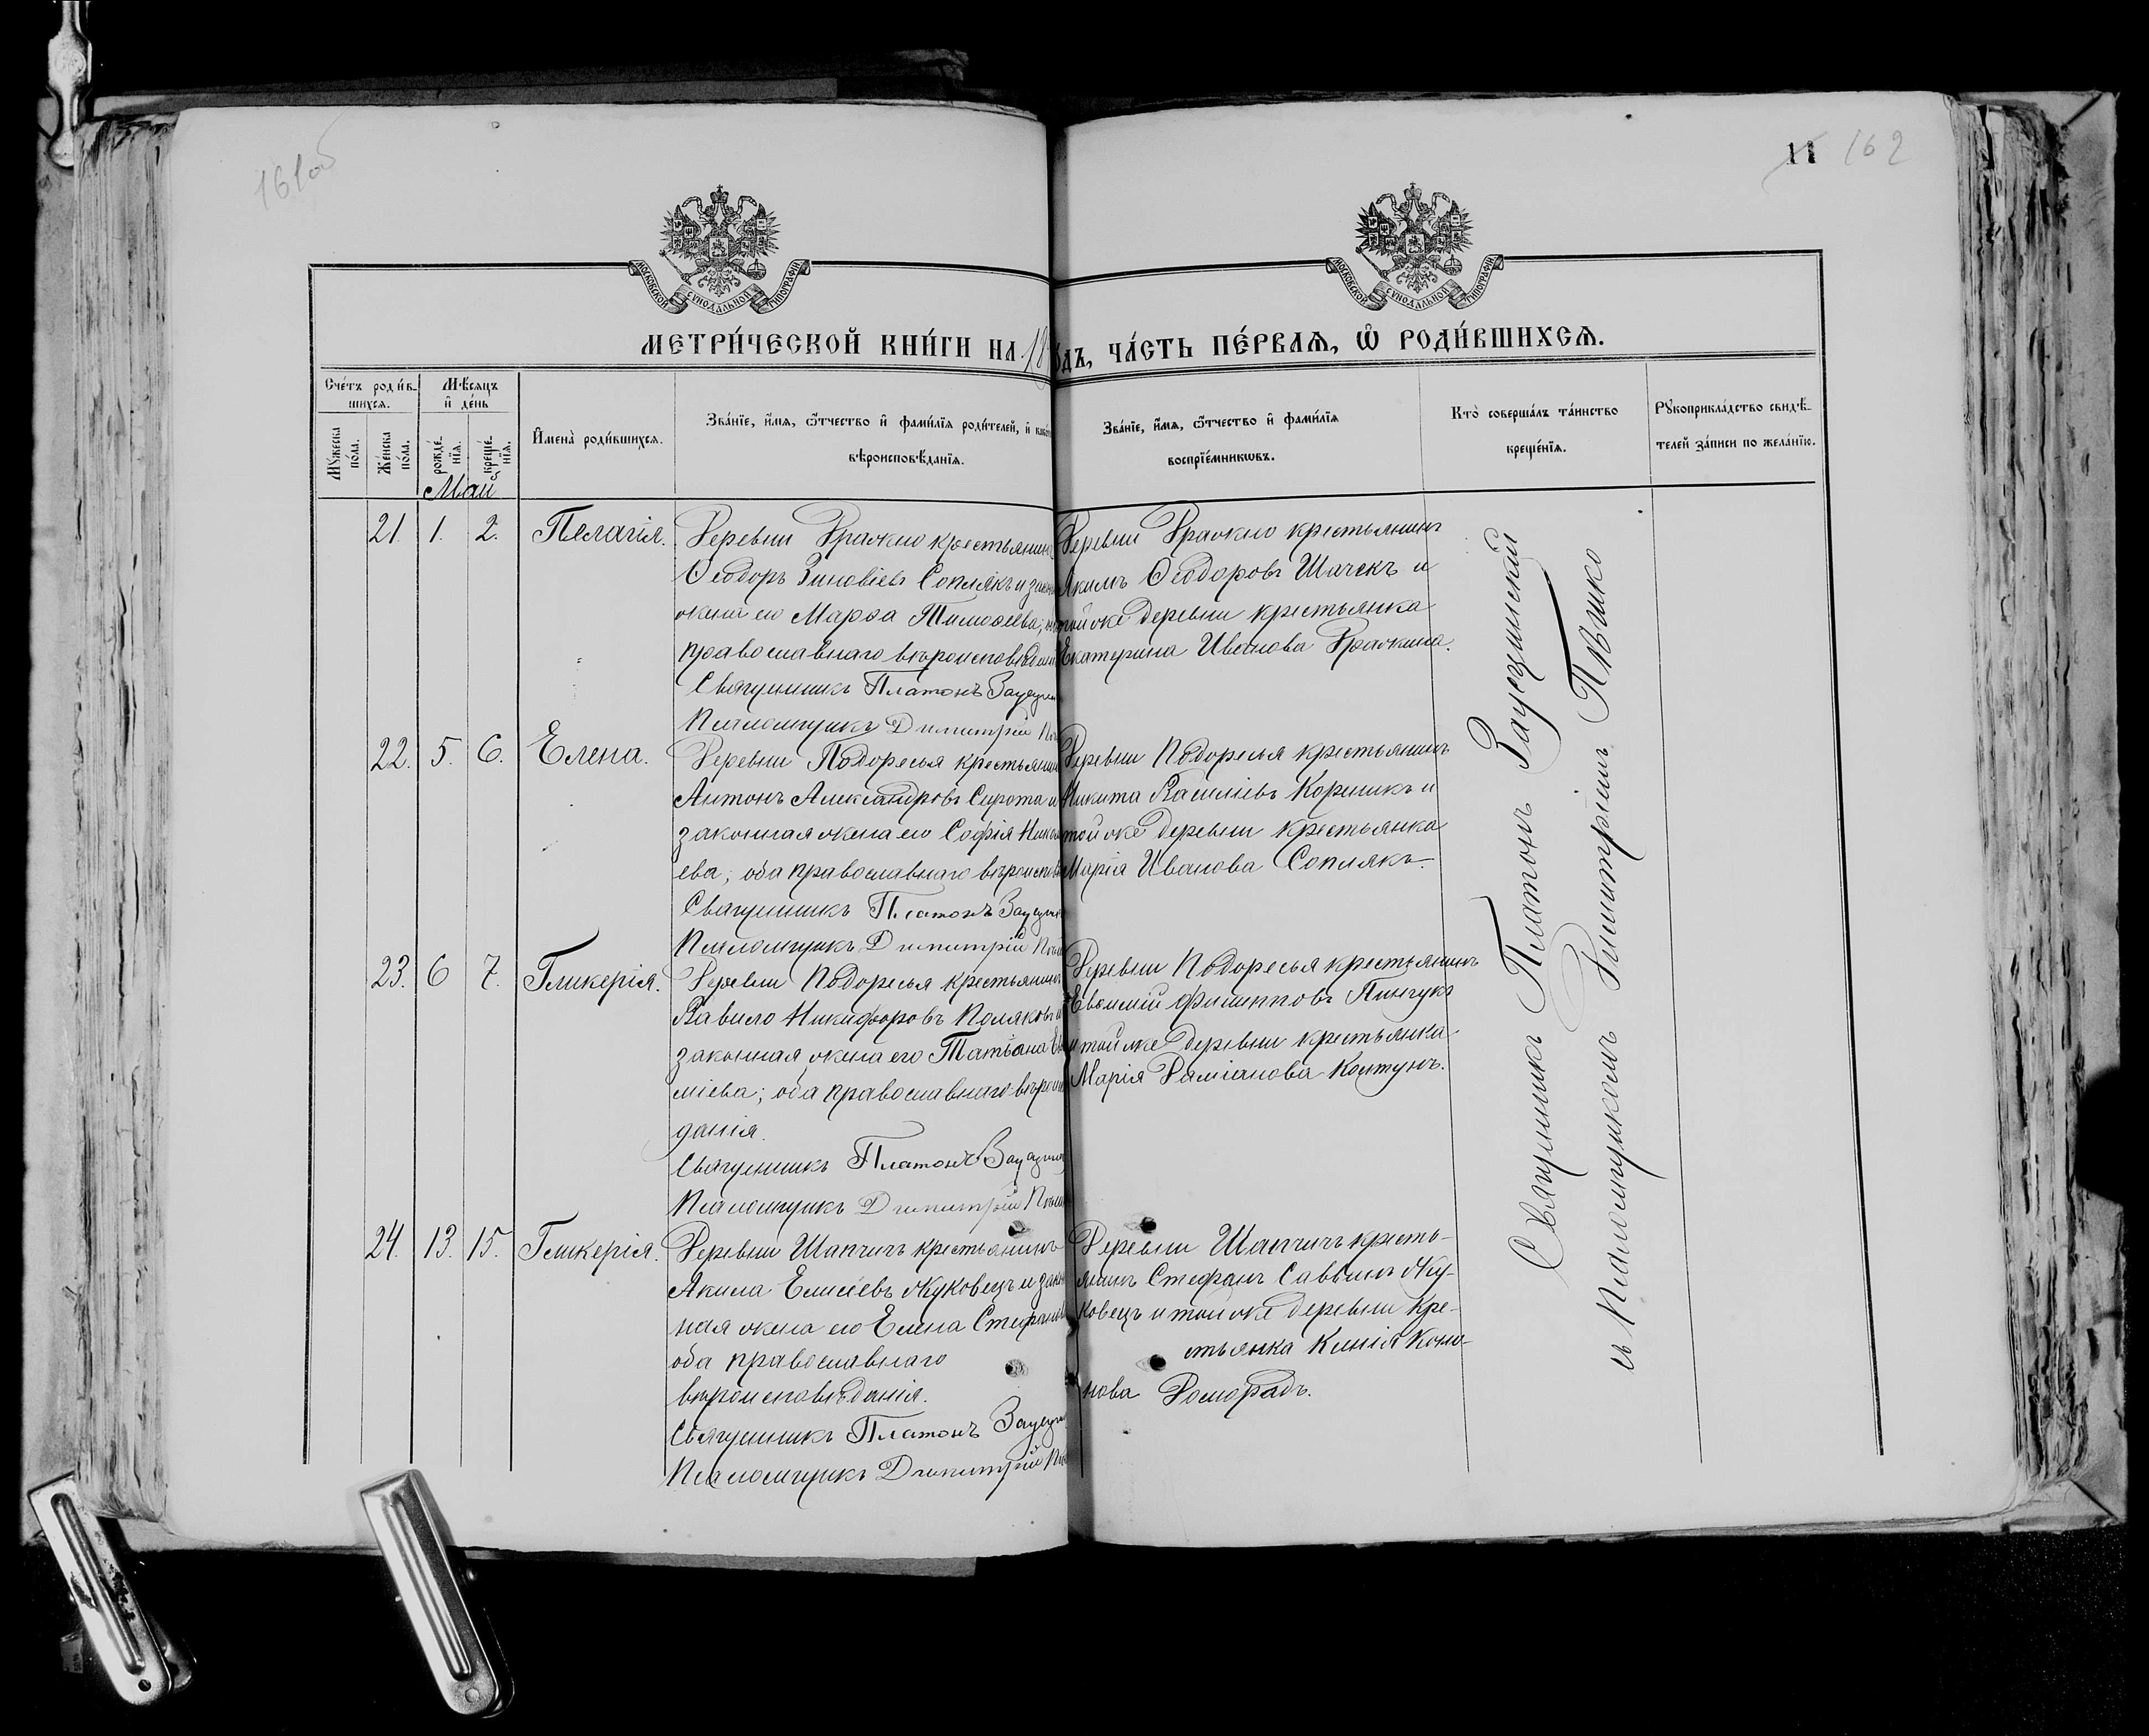 161об
11 162
МОСКОВСКОЙ СѴНОДАЛЬНОЙ ТИПОГРАФІИ
МОСКОВСКОЙ СѴНОДАЛЬНОЙ ТИПОГРАФІИ
МЕТРИ́ЧЕСКОЙ КНИ́ГИ НА 18
ДЪ, ЧА́СТЬ ПЕ́РВАѦ, Ѡ҆ РОДИ́ВШИХСѦ.
Сче́тъ роди́в-
шихсѧ.
Мꙋ́жеска
по́ла.
Же́нска
по́ла.
Мѣ́сѧцъ
и҆ де́нь
рожде́-
нїѧ.
креще́-
нїѧ.
И҆мена̀ роди́вшихсѧ.
Зва́нїе, и҆́мѧ, ѻ҆́тчество и҆ фами́лїѧ роди́телей, и҆
вѣроисповѣ́данїѧ.
Зва́нїе, и҆́мѧ, ѻ҆́тчество и҆ фами́лїѧ
воспрїе́мникѡвъ.
Кто̀ соверша́лъ та́инство
креще́нїѧ.
Рꙋкоприкла́дство свидѣ́-
телей за́писи по жела́нїю.
Май
21. 1. 2. Пелагія.
Деревни Драчкио крестьянинъ
Ѳеодоръ Зиновіевъ Соплякъ и закон
жена его Марѳа Тимоѳеева;
православнаго вѣроисповѣдані
Священникъ Платонъ
Псаломщикъ Димитрій
Деревни Драчкио крестьянинъ
Якимъ Ѳеодоровъ Шачекъ и
той же деревни крестьянка
Екатерина Иванова Драчкина.
22. 5. 6. Елена.
Деревни Подоресья крестьянин
Антонъ Александровъ Сирота и
законная жена его Софія
ева; оба православнаго вѣроиспов
Священникъ Платонъ
Псаломщикъ Димитрій
Деревни Подоресья крестьянинъ
Никита Василіевъ Корженикъ и
той же деревни крестьянка
Марія Иванова Соплякъ.
23. 6 7. Гликерія.
Деревни Подоресья крестьянинъ
Вавило Никифоровъ Поляковъ и
законная жена его Татьяна Ев
міева; оба православнаго вѣроиспо
данія.
Священникъ Платонъ
Псаломщикъ Димитрій
Деревни Подоресья крестьянинъ
Евѳимій Филипповъ Пинчукъ
и той же деревни крестьянка
Марія Даміанова Колтунъ.
24. 13. 15. Гликерія.
Деревни Шапчичъ крестьянинъ
Акила Елисеевъ Жуковецъ и закон
ная жена его Елена Стефанова
оба православнаго
вѣроисповѣданія.
Священникъ Платонъ
Псаломщикъ Димитрій
Деревни Шапчичъ кресть-
янинъ Стефанъ Саввинъ Жу-
ковецъ и той же деревни кре-
стьянка Ксенія Коно-
нова Доморадъ.
Священникъ Платонъ Заусцинскій
съ Псаломщикомъ Димитріемъ Пѣшко